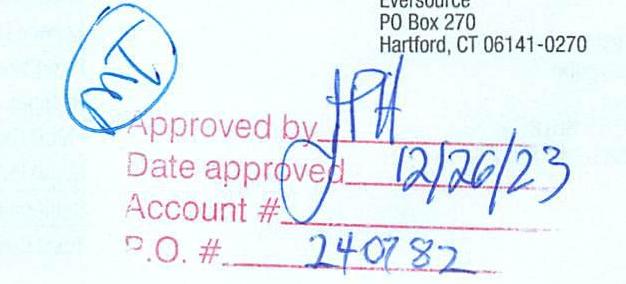 Eversource
PO Box 270
Hartford, CT 06141-0270
Approved by JPH
Date approved 12/26/23
Account #
P.O. # 240782